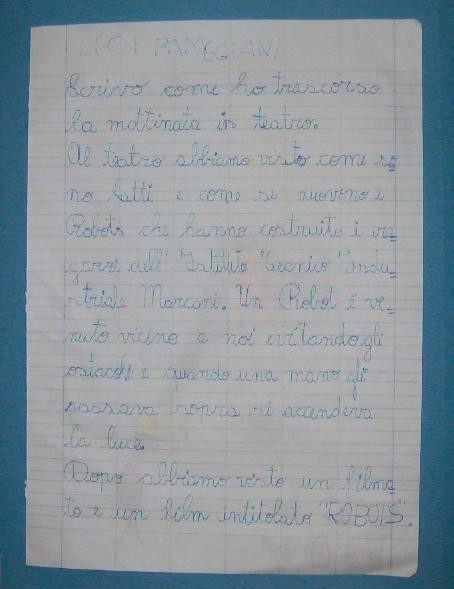 LUCA PAMEGIANI
Scrivo come ho trascorso
la mattinata in teatro.
Al teatro abbiamo visto come so=
no fatti e come si muovono i
Robots che hanno costruito i ra=
gazzi dell' Istituto Tecnico Indu=
striale Marconi. Un Robot è ve=
nuto vicino a noi evitando gli
ostacoli e quando una mano gli
passava sopra si accendeva
la luce.
Dopo abbiamo visto un filma
to e un film intitolato "ROBOTS".